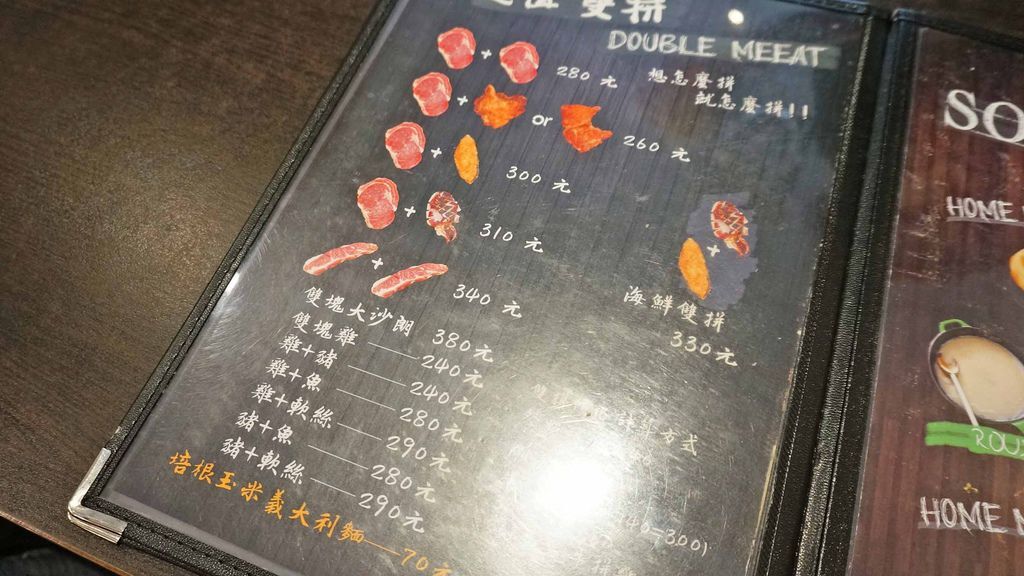 雙拼
DOUBLE MEEAT
想怎麼拼
就怎麼拼!!
+ 280 元
+ or 260 元
+ 300 元
+ 310 元
+ 340 元
雙塊大沙朗 380元
雙塊雞 240元
雞+豬 240元
雞+魚 280元
雞+軟絲 290元
豬+魚 280元
豬+軟絲 290元
培根玉米義大利麵 70元
+
海鮮雙拼
330元
方式
SO
HOME
ROU
HOME